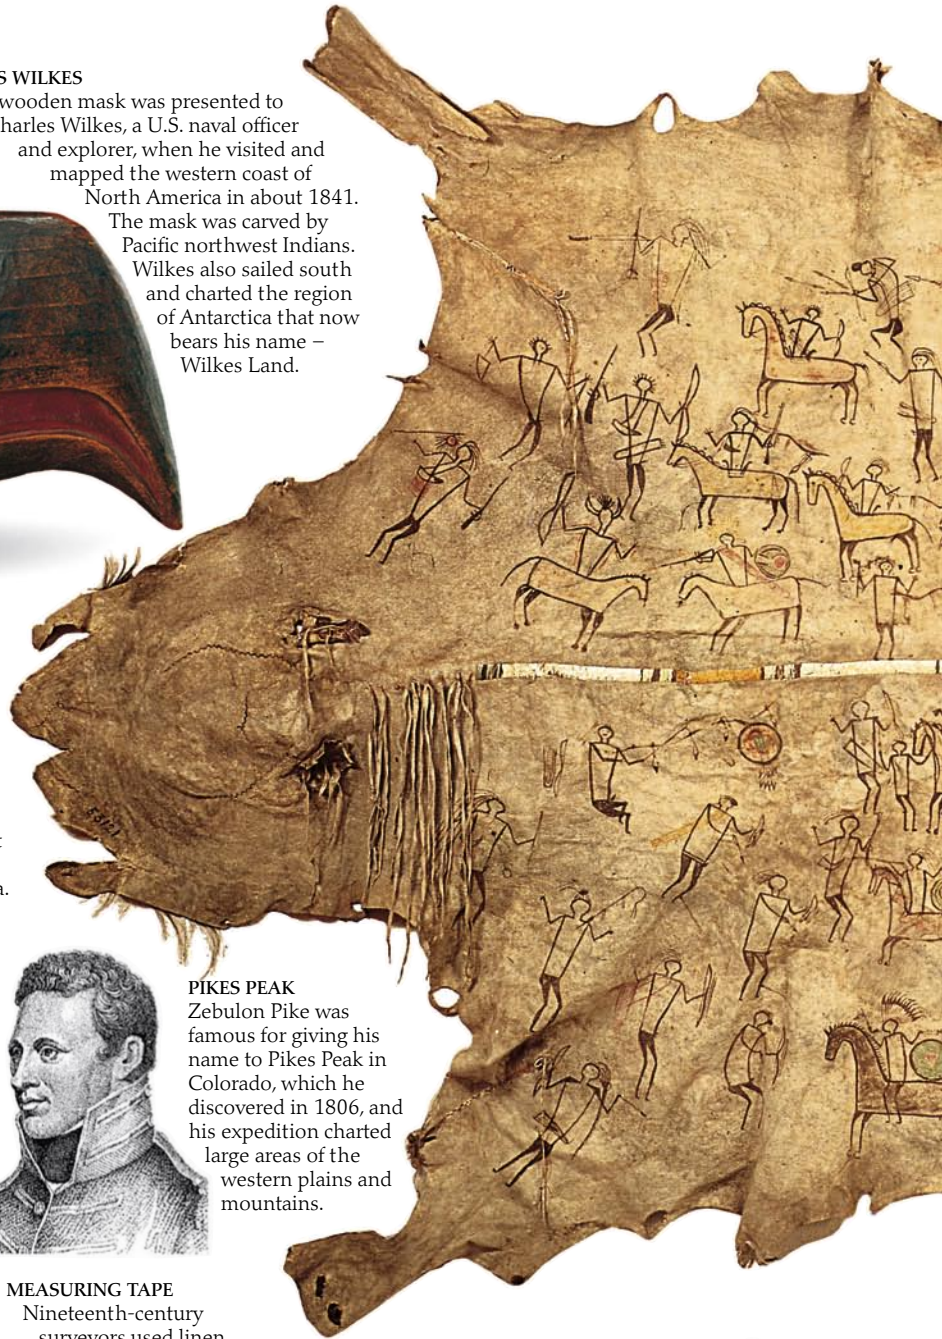 S WILKES
wooden mask was presented to
harles Wilkes, a U.S. naval officer
and explorer, when he visited and
mapped the western coast of
North America in about 1841.
The mask was carved by
Pacific northwest Indians.
Wilkes also sailed south
and charted the region
of Antarctica that now
bears his name –
Wilkes Land.
a.
PIKES PEAK
Zebulon Pike was
famous for giving his
name to Pikes Peak in
Colorado, which he
discovered in 1806, and
his expedition charted
large areas of the
western plains and
mountains.
MEASURING TAPE
Nineteenth-century
surveyors used linen